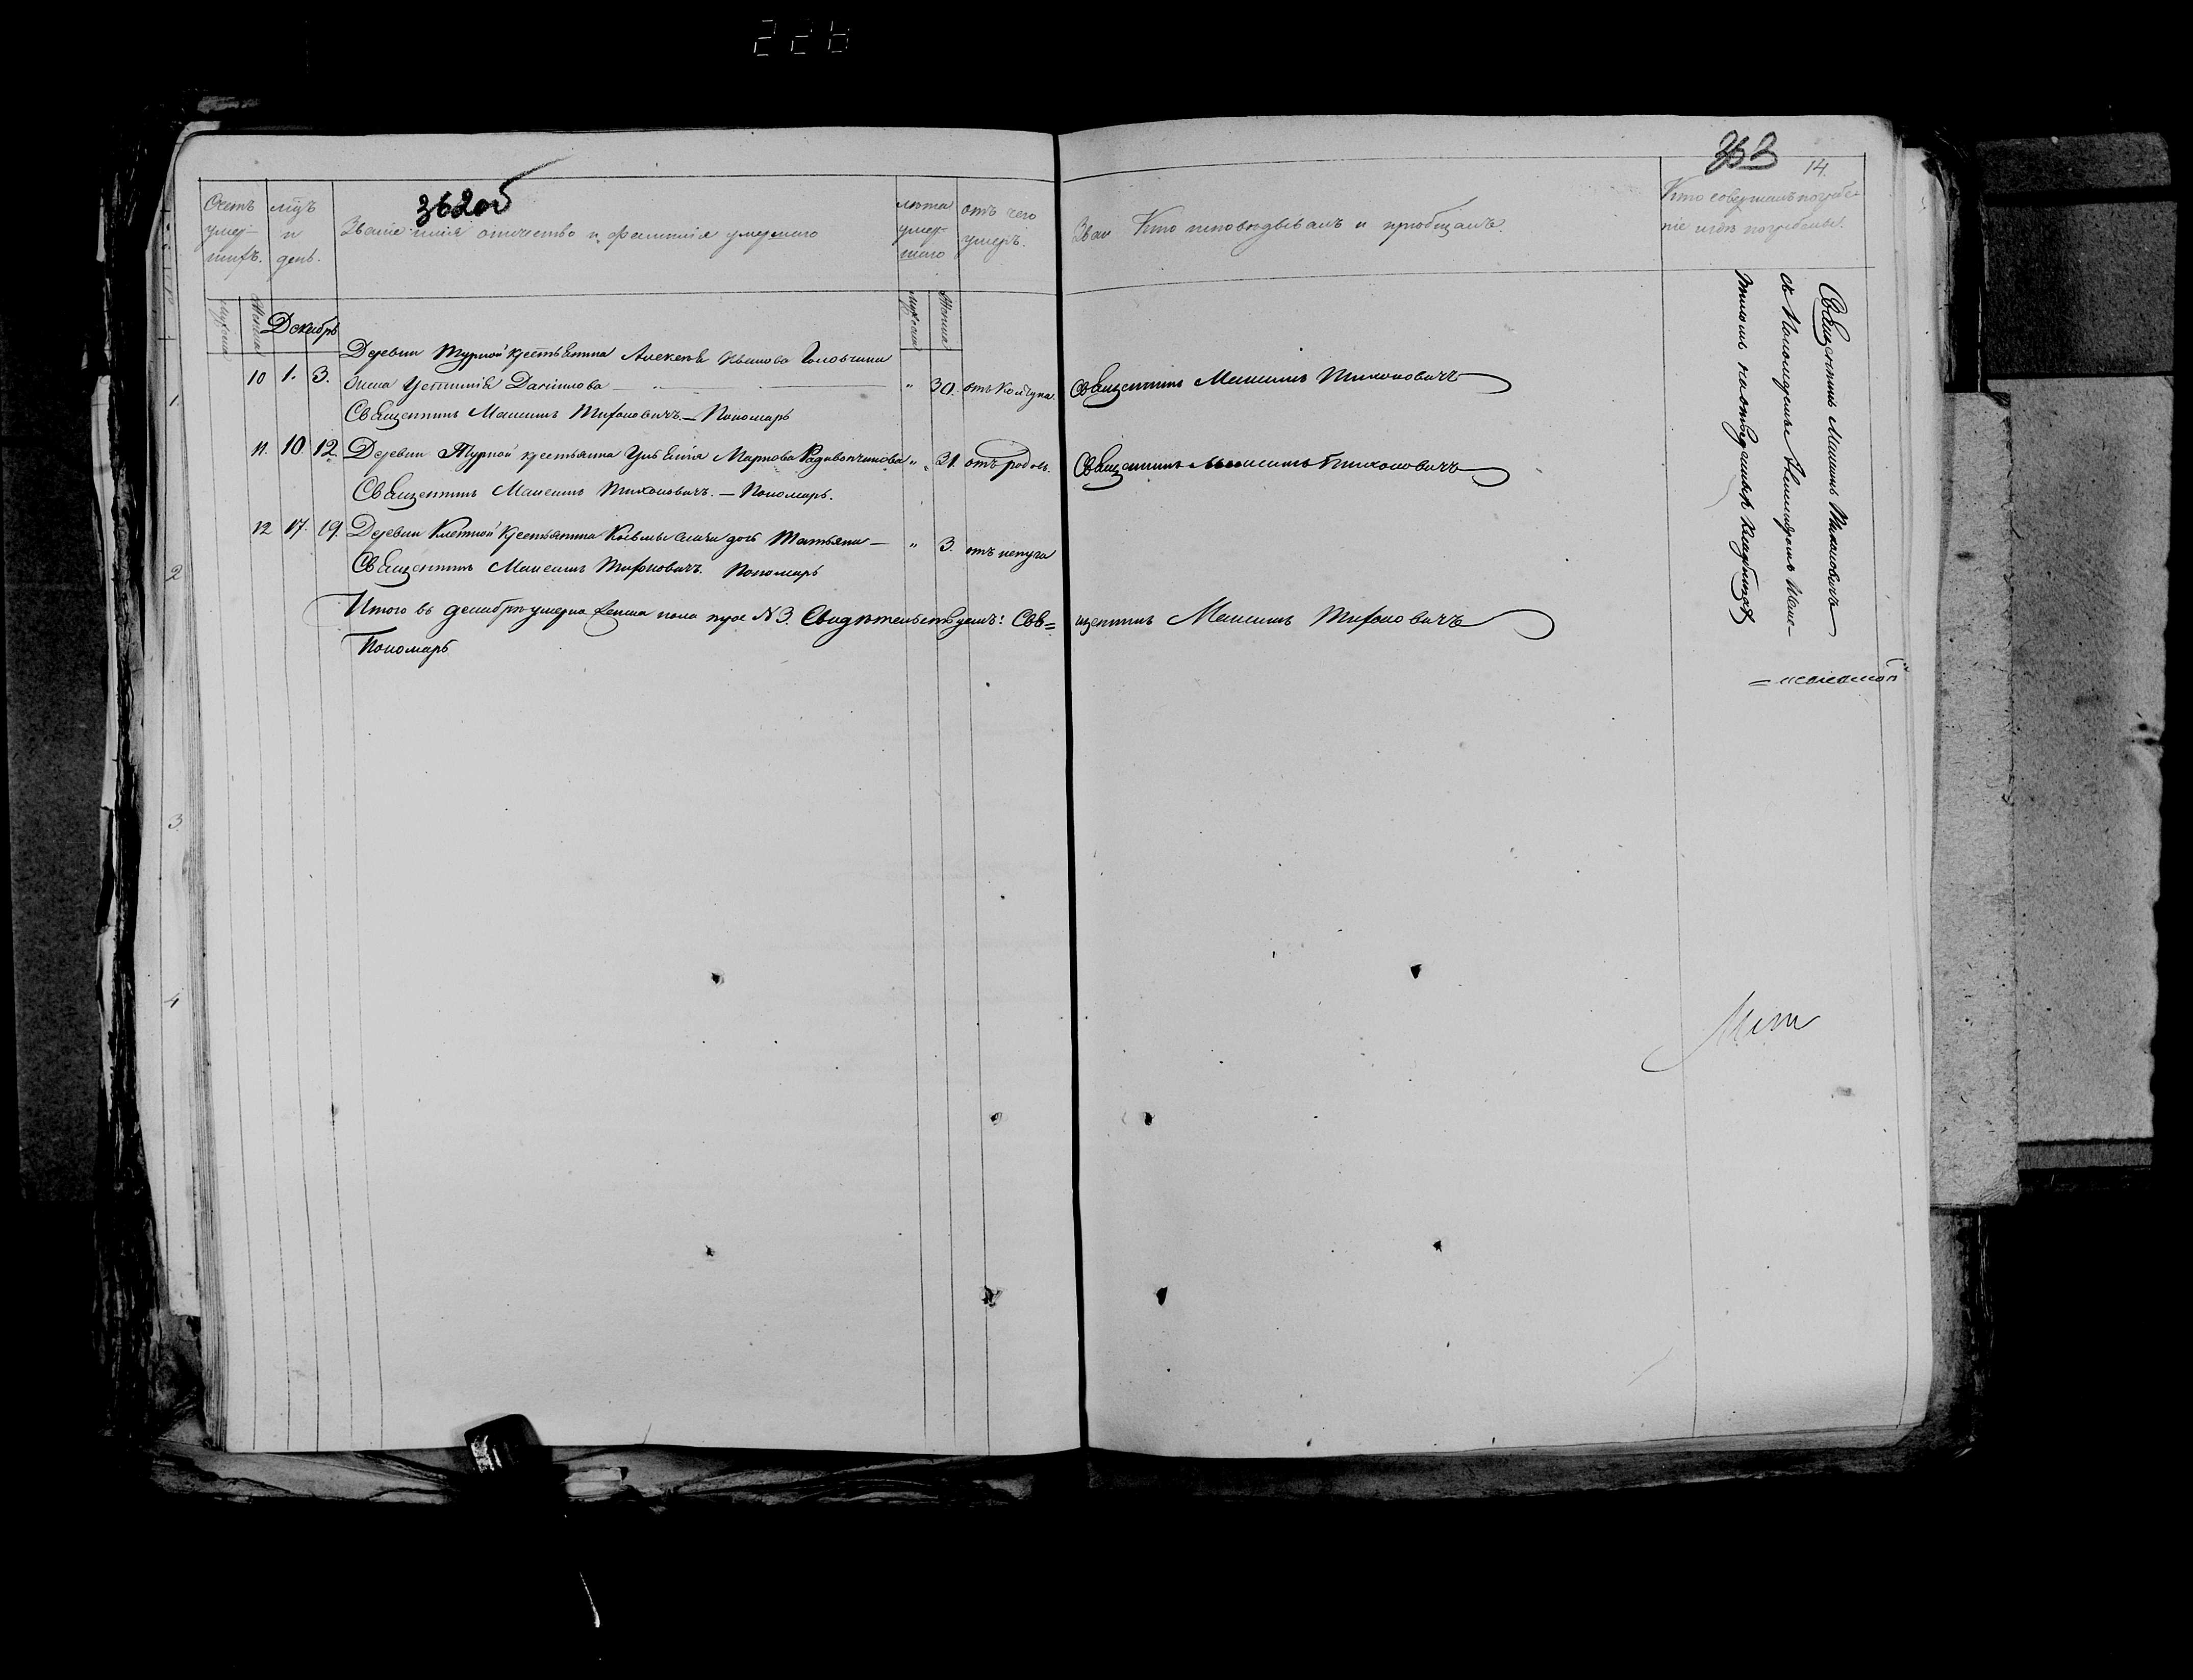 226
362об
363
14.
Счетъ умер-шихъ.
мцъ и день.
Званіе имя отчество и фамилія умершаго
лета умер-шаго
отъ чего умеръ.
Кто исповѣдывалъ и пріобщалъ.
Кто совершалъ погребе-
ніе и гдѣ погребены.
Декабрь
Деревни Турной крестьянина Алексея Иванова Головчина
10 1. 3. жена Устинія Данилова — " — " 30. отъ Священникъ Максимъ Тихоновичъ
Священникъ Максимъ Тихоновичъ. — Пономарь
11. 10. 12. Деревни Турной крестьянка Маркова " 31. отъ родовъ. Священникъ Максимъ Тихоновичъ
Священникъ Максимъ Тихоновичъ. — Пономарь.
12 17. 19. Деревни крестьянина дочь Татьяна — " 3. отъ испуга
Священникъ Максимъ Тихоновичъ. Пономарь
Итого въ декабрѣ умерло женска пола №3. Свидѣтельствуемъ: Свя=щенникъ Максимъ Тихоновичъ
Пономарь
Священникъ Максимъ Тихоновичъ
съ Пономаремъ
на кладбищѣ
1
2
3
4